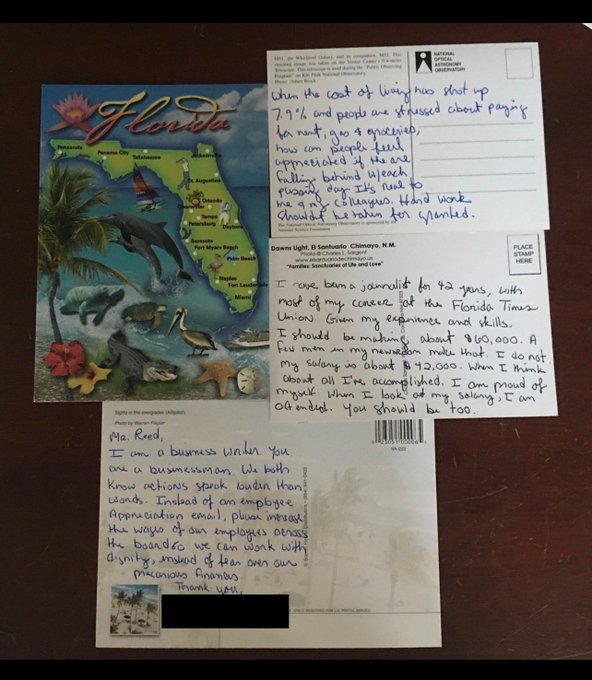 Florida
Pensacola
Panama City
Tallahassee
Jacksonville
St. Augustine
Orlando
Clearwater
Tampa
Petersburg
Daytona
Sarasota
Fort Myers Beach
Palm Beach
Naples
Fort Lauderdale
Miami
M51, the Whirlpool Galaxy, and its companion, M51. This
stunning image was taken on the Visitor Center's 0.4-meter
Telescope. This telescope is used during the "Public Observing
Program" on Kitt Peak National Observatory.
Photo: Adam Block
NATIONAL
OPTICAL
ASTRONOMY
OBSERVATORY
When the cost of living has shot up
7.9% and people are stressed about paying
for rent, gas & groceries,
how can people feel
appreciated if the are
falling behind w/each
passing day It's real to
me & my colleagues. Hard work
should not be taken for granted.
The National Optical Astronomy Observatory is sponsored by the
National Science Foundation
Dawns Light, El Santuario Chimayo, N.M.
Photo © Charles L. Sargent
www.elsantuariodechimayo.us
"Families: Sanctuaries of Life and Love"
PLACE
STAMP
HERE
I have been a journalist for 42 years, with
most of my career at the Florida Times
Union. Given my experience and skills.
I should be making about $60,000. A
few men in my newsroom make that. I do not
my salary is about $42,000. When I think
about all I've accomplished, I am proud of
myself. When I look at my salary, I am
offended. You should be too.
Sights in the everglades (Alligator).
Photo by Warren Flagler
Mr. Reed,
I am a business writer. You
are a businessman. We both
know actions speak louder than
words. Instead of an employee
Appreciation email, please increase
the wages of our employees across
the board so we can work with
dignity, instead of fear over our
precarious finances
Thank you,